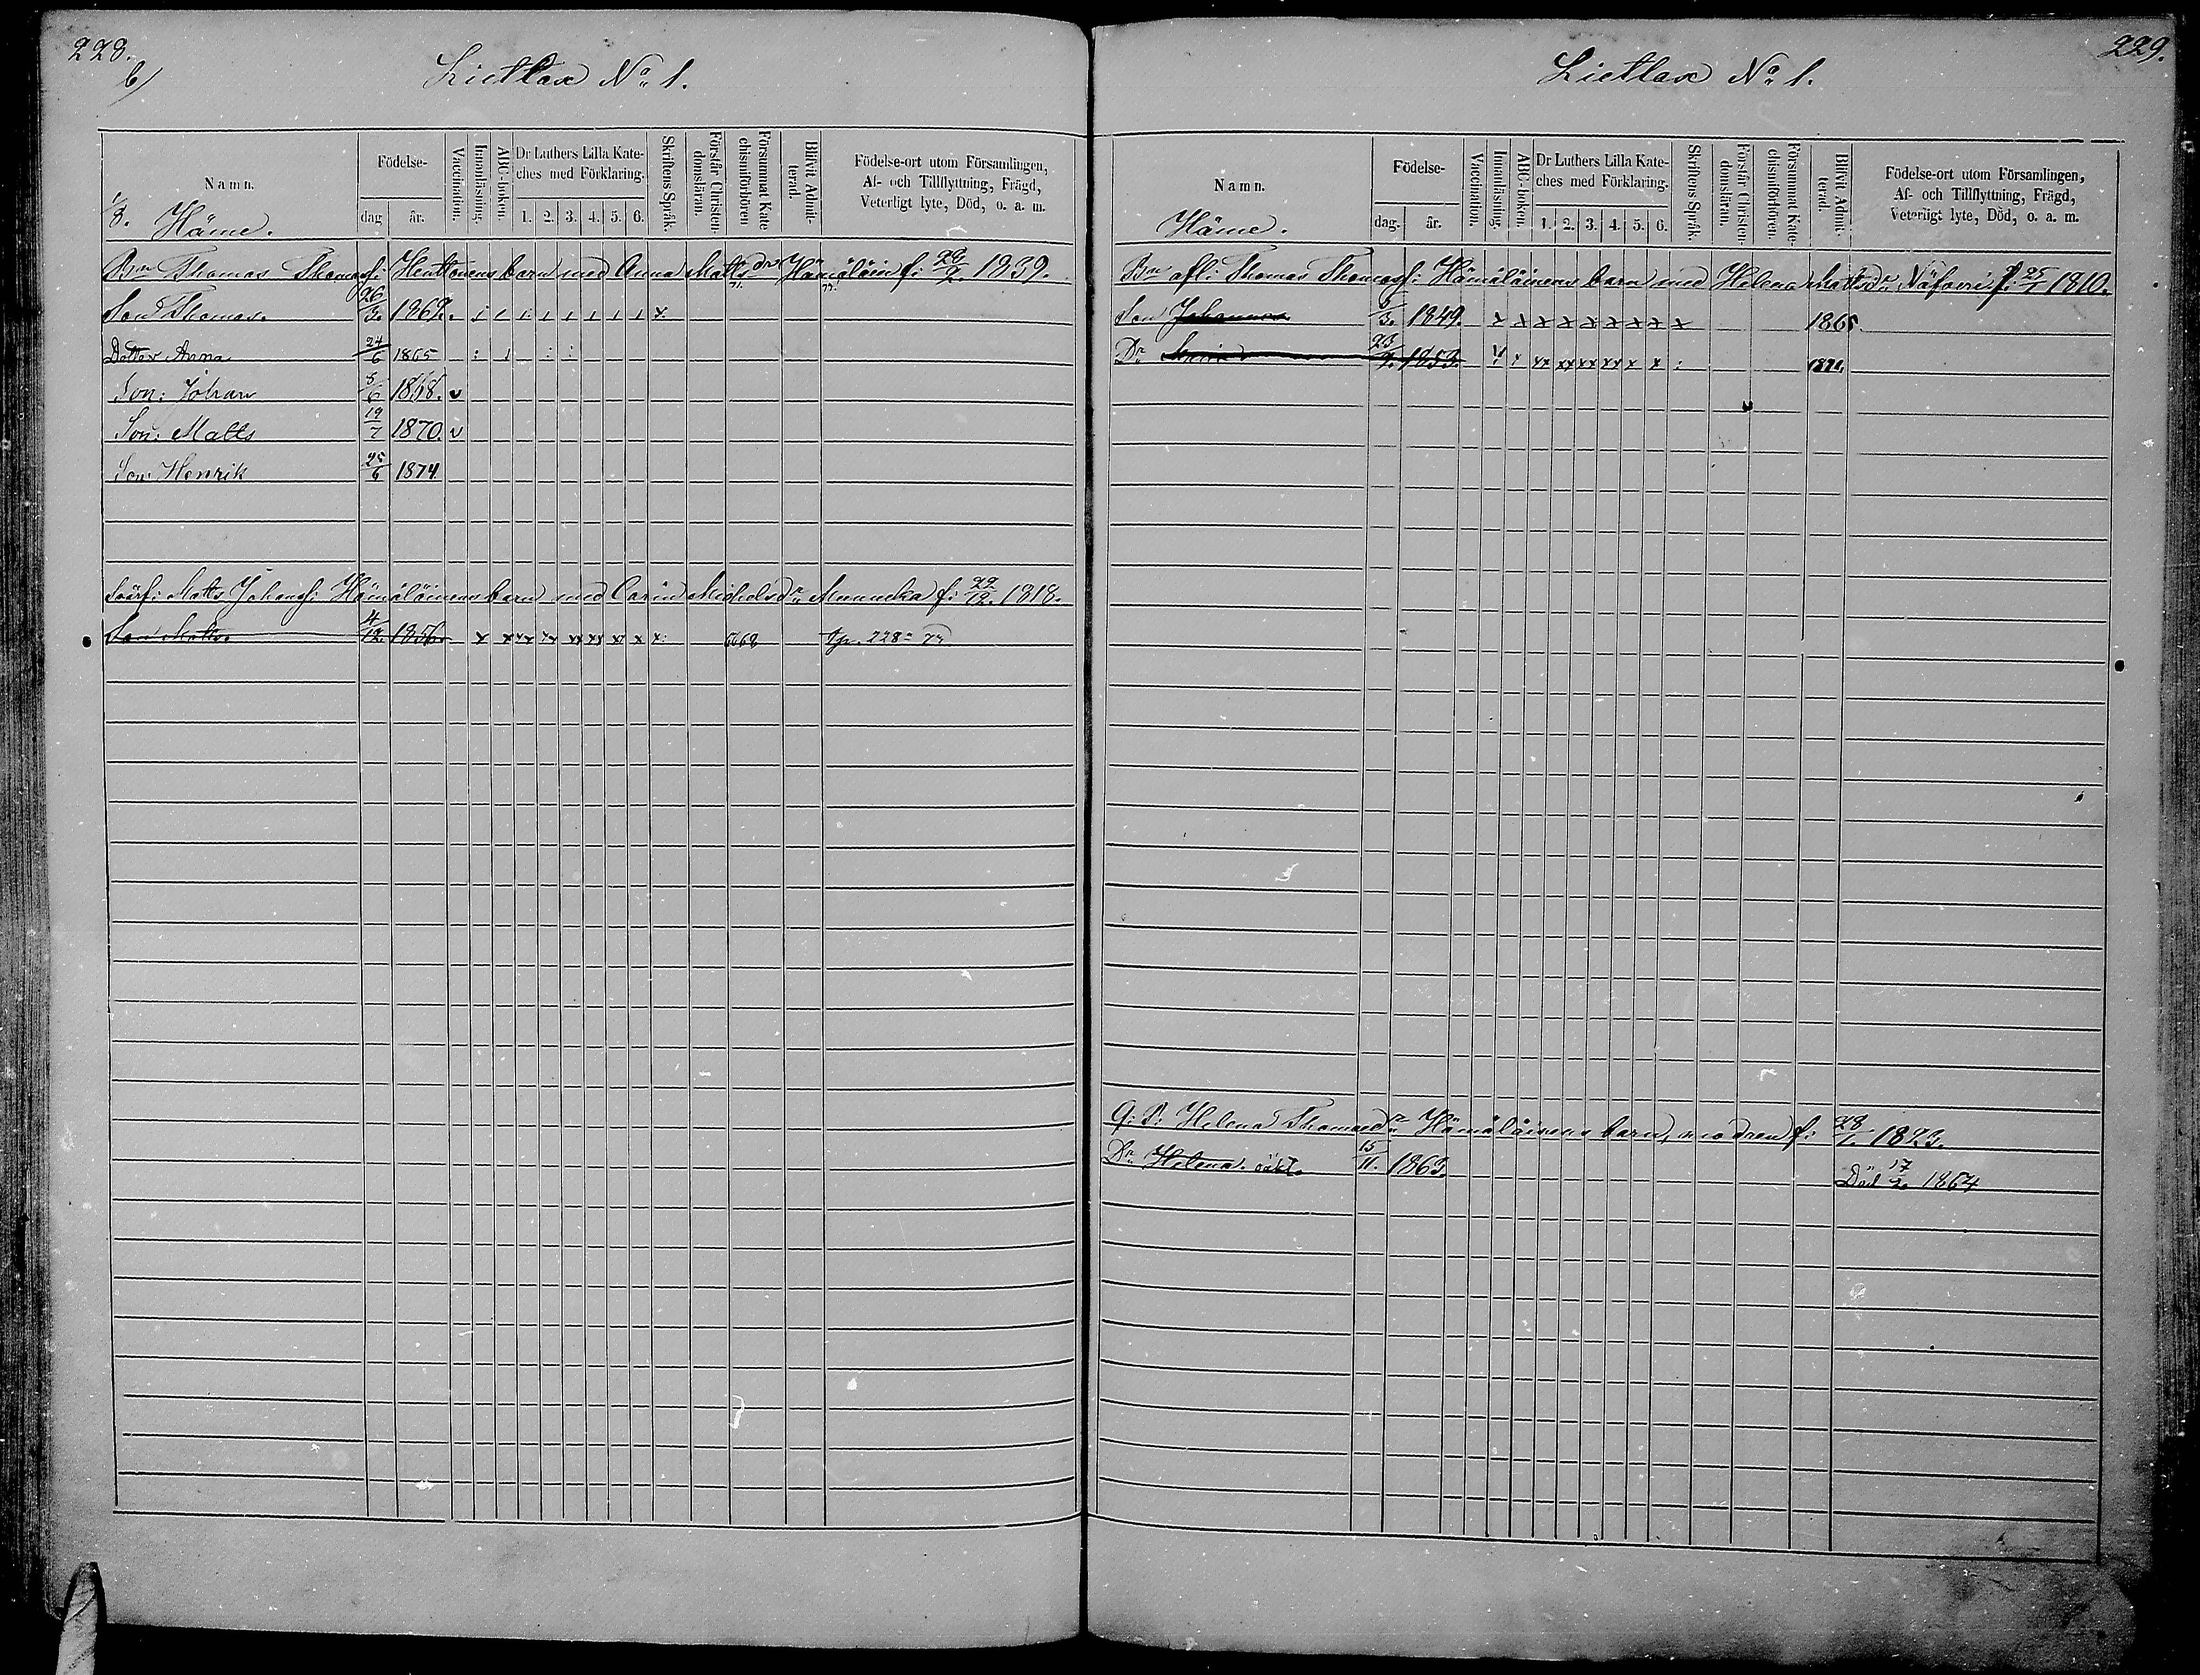 228.
b/
Lietlax No 1.
Namn.
Födelse-
dag
år.
Vaccination.
Innanläsning.
ABC-boken.
Dr Luthers Lilla Kate-
ches med Förklaring.
1. 2. 3. 4. 5. 6.
Skriftens Språk.
Förstår Christen-
domsläran.
Försummat Kate
chismiförhören
Blifvit Admit-
terad.
Födelse-ort utom Församlingen,
Af- och Tillflyttning, Frägd,
Veterligt lyte, Död, o. a. m.
3. Häme.
Bn Thomas Thomasf: Henttonens barn med Anna Mattsdr Hämäläin f: 28/2. 1839.
Son Thomas. 26/3. 1862.
Dotter Anna 24/6 1865
Son: Johan 8/6 1868. v
Son: Matts 19/7 1870. v
Son: Henrik 25/6 1874.
Matts Johansf: Hämäläinens barn med Carin Michelsdr Munnuka f: 22/12. 1818.
Son Matts. 4/12. 1856. x x xx xx xx xx xx x x: 6668 228
229.
Lietlax No 1.
Namn.
Födelse-
dag.
år.
Vaccination.
Innanläsning.
ABC-boken.
Dr Luthers Lilla Kate-
ches med Förklaring.
1. 2. 3. 4. 5. 6.
Skriftens Språk.
Förstår Christen-
domsläran.
Försummat Kate-
chismiförhören.
Blifvit Admit-
terad.
Födelse-ort utom Församlingen,
Af- och Tillflyttning, Frägd,
Veterligt lyte, Död, o. a. m.
Häme.
Bn afl: Thomas Thomasf: Hämäläinens barn med Helena Mattsdr f: 25/1 1810.
Son Johannes /3. 1849. x x x x x x x x x 1865
Dr 23/ 1853. xx xx xx xx x x : 1871.
Q: P: Helena Thomasdr Hämäläinens barn, modren f: 28/1 1823.
Dr Helena oäkt. 15/11. 1863. Död 17/2 1864